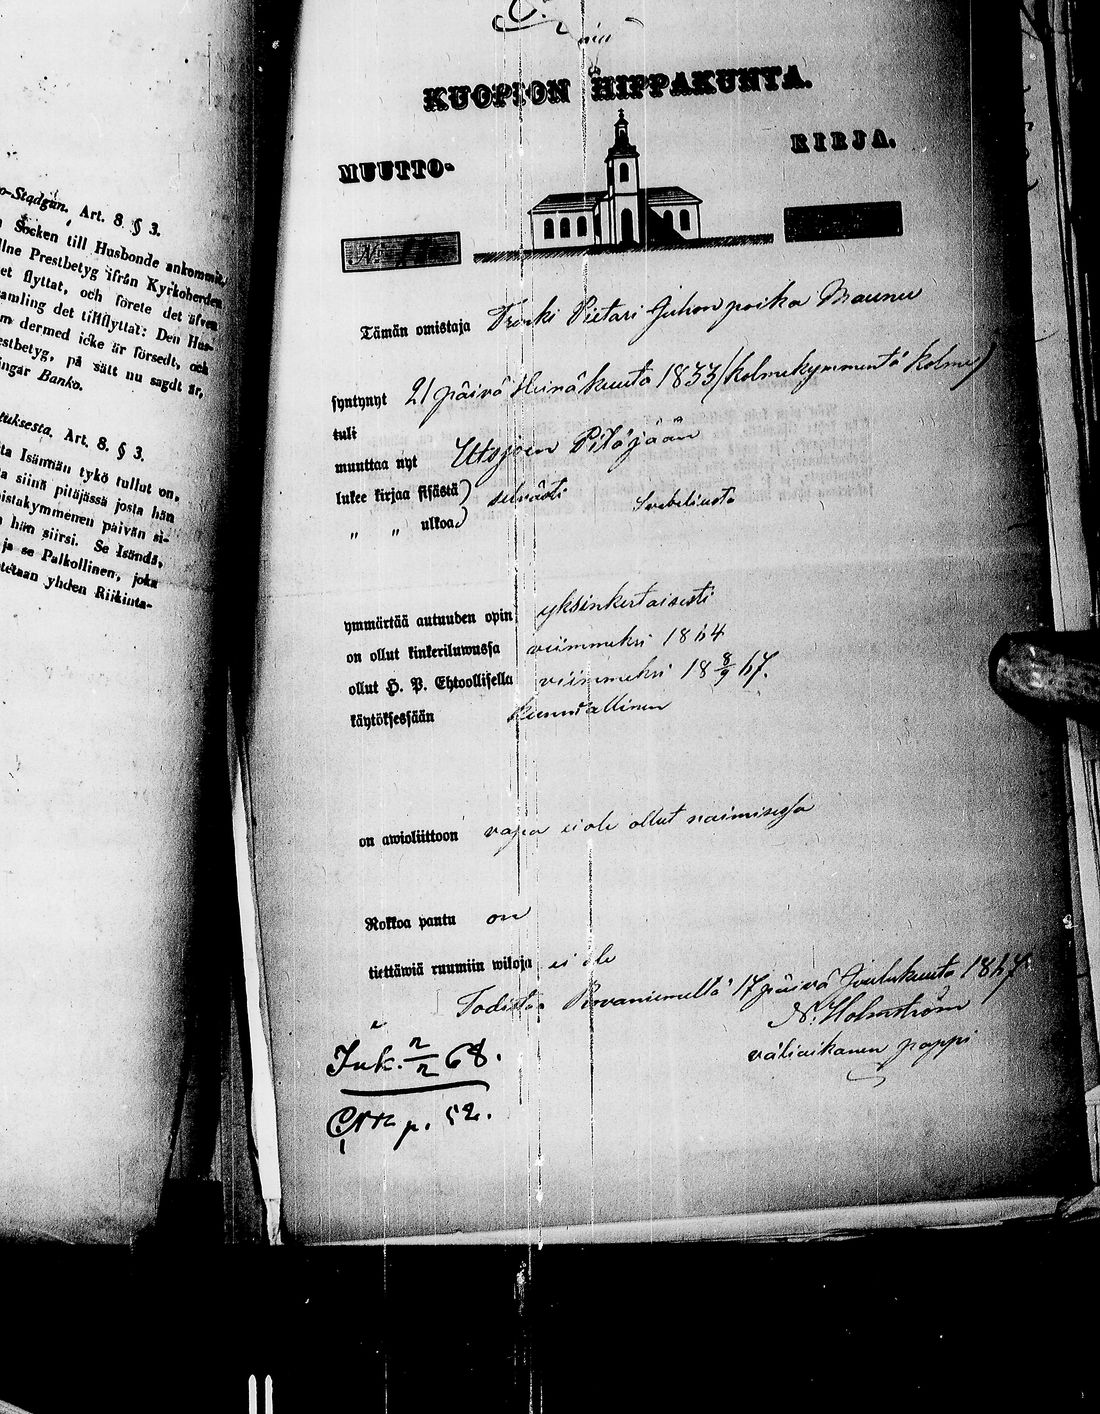 o-Stadgan. Art. 8 § 3.
Socken till Husbonde ankommit,
Prestbetyg ifrån Kyrkoherden
et flyttat, och förete det äfven
amling det tillflyttat: Den Hus-
m dermed icke är försedt, och
estbetyg, på sätt nu sagdt är,
ingar Banko.
tuksesta. Art. 8. § 3.
ta Isännän tykö tullut on,
a siinä pitäjässä josta hän
oistakymmenen päivän si-
hän siirsi. Se Isändä,
ja se Palkollinen, joka
tetaan yhden Riikinta-
KUOPION HIPPAKUNTA.
MUUTTO- KIRJA.
N:
Tämän omistaja Renki Pietari Juhon poika Maunu
syntynyt 21 päivä Heinäkuuta 1833 (kolmekymmentä kolme)
tuli
muuttaa nyt Utsjoen Pitäjään
lukee kirjaa sisästä) selvästi Svebeliusta
" " ulkoa)
ymmärtää autuuden opin yksinkertaisesti
on ollut kinkeriluwussa viimmeksi 1864
ollut H. P. Ehtoollisella viimmeksi 18 8/9 67.
käytöksessään kunniallinen
on awioliittoon vapa ei ole ollut naimisessa
Rokkoa pantu on
tiettäwiä ruumiin wikoja ei ole
Todistaa Rovaniemellä 17 päivä Joulukuuta 1867
N. Holmström
väliaikanen pappi
Ink. 68.
p. 52.